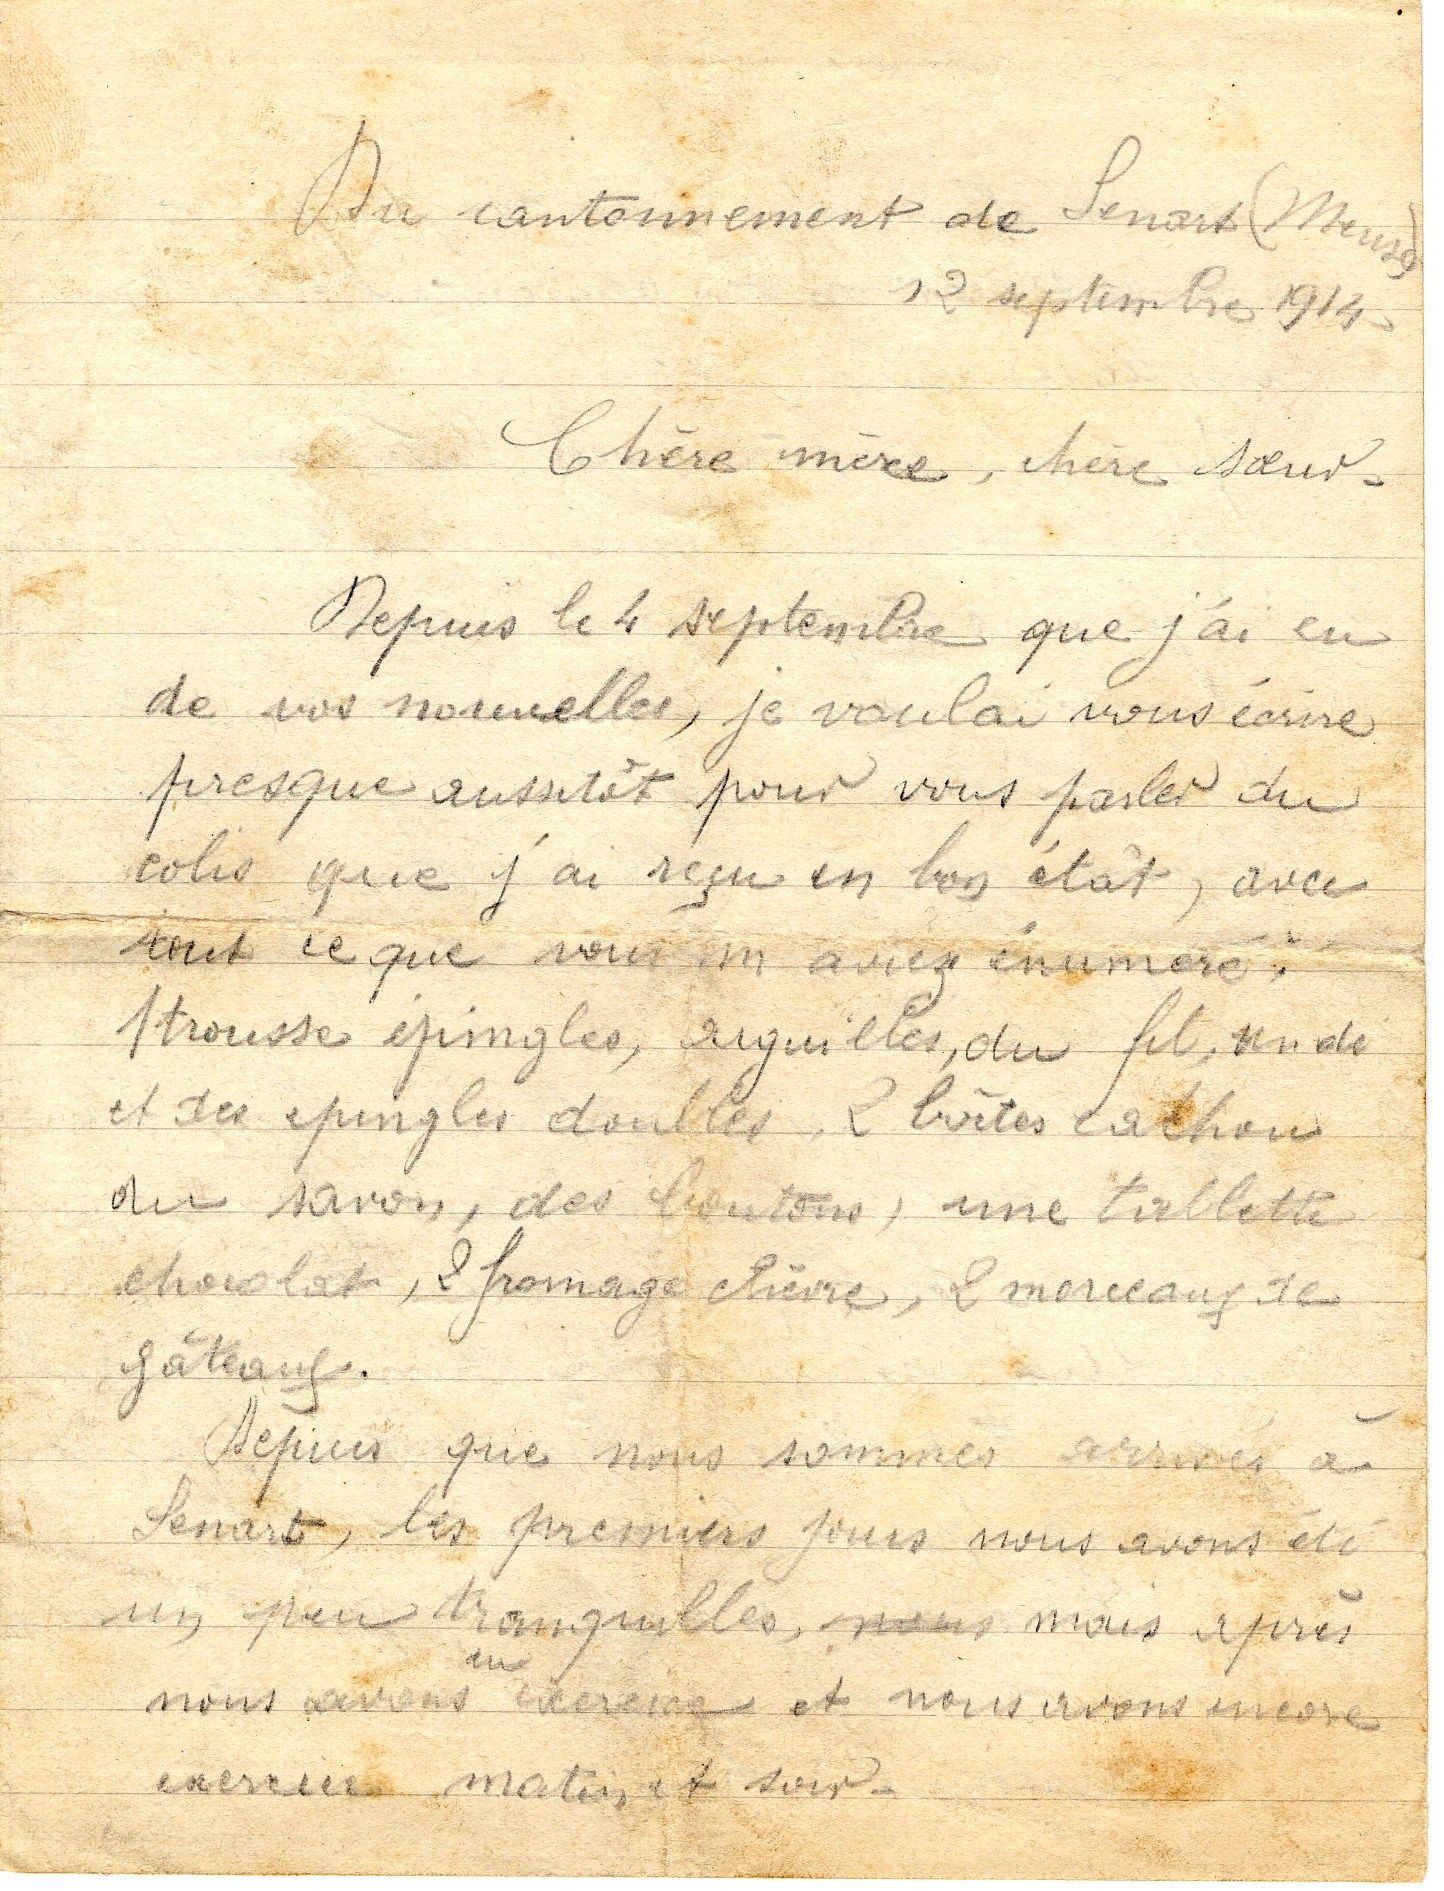 Du cantonnement de Senart (Meuse)
12 septembre 1914.
Chère mère, chère sœur.
Depuis le 4 septembre que j'ai eu
de vos nouvelles, je voulai vous écrire
presque aussitôt pour vous parler du
colis que j'ai reçu en bon êtât, avec
tout ce que vous m'aviez énuméré :
1 trousse épingles, aiguilles, du fil, un dé
et des epingles doubles, 2 boîtes cachou
du savon, des boutons, une tablette
chocolat, 2 fromage chèvre, 2 morceaux de
gâteaux.
Depuis que nous sommes arrivés à
Senart, les premiers jours nous avons été
un peu tranquilles, nous mais après
nous avons eu exercice et nous avons encore
exercice matin et soir.